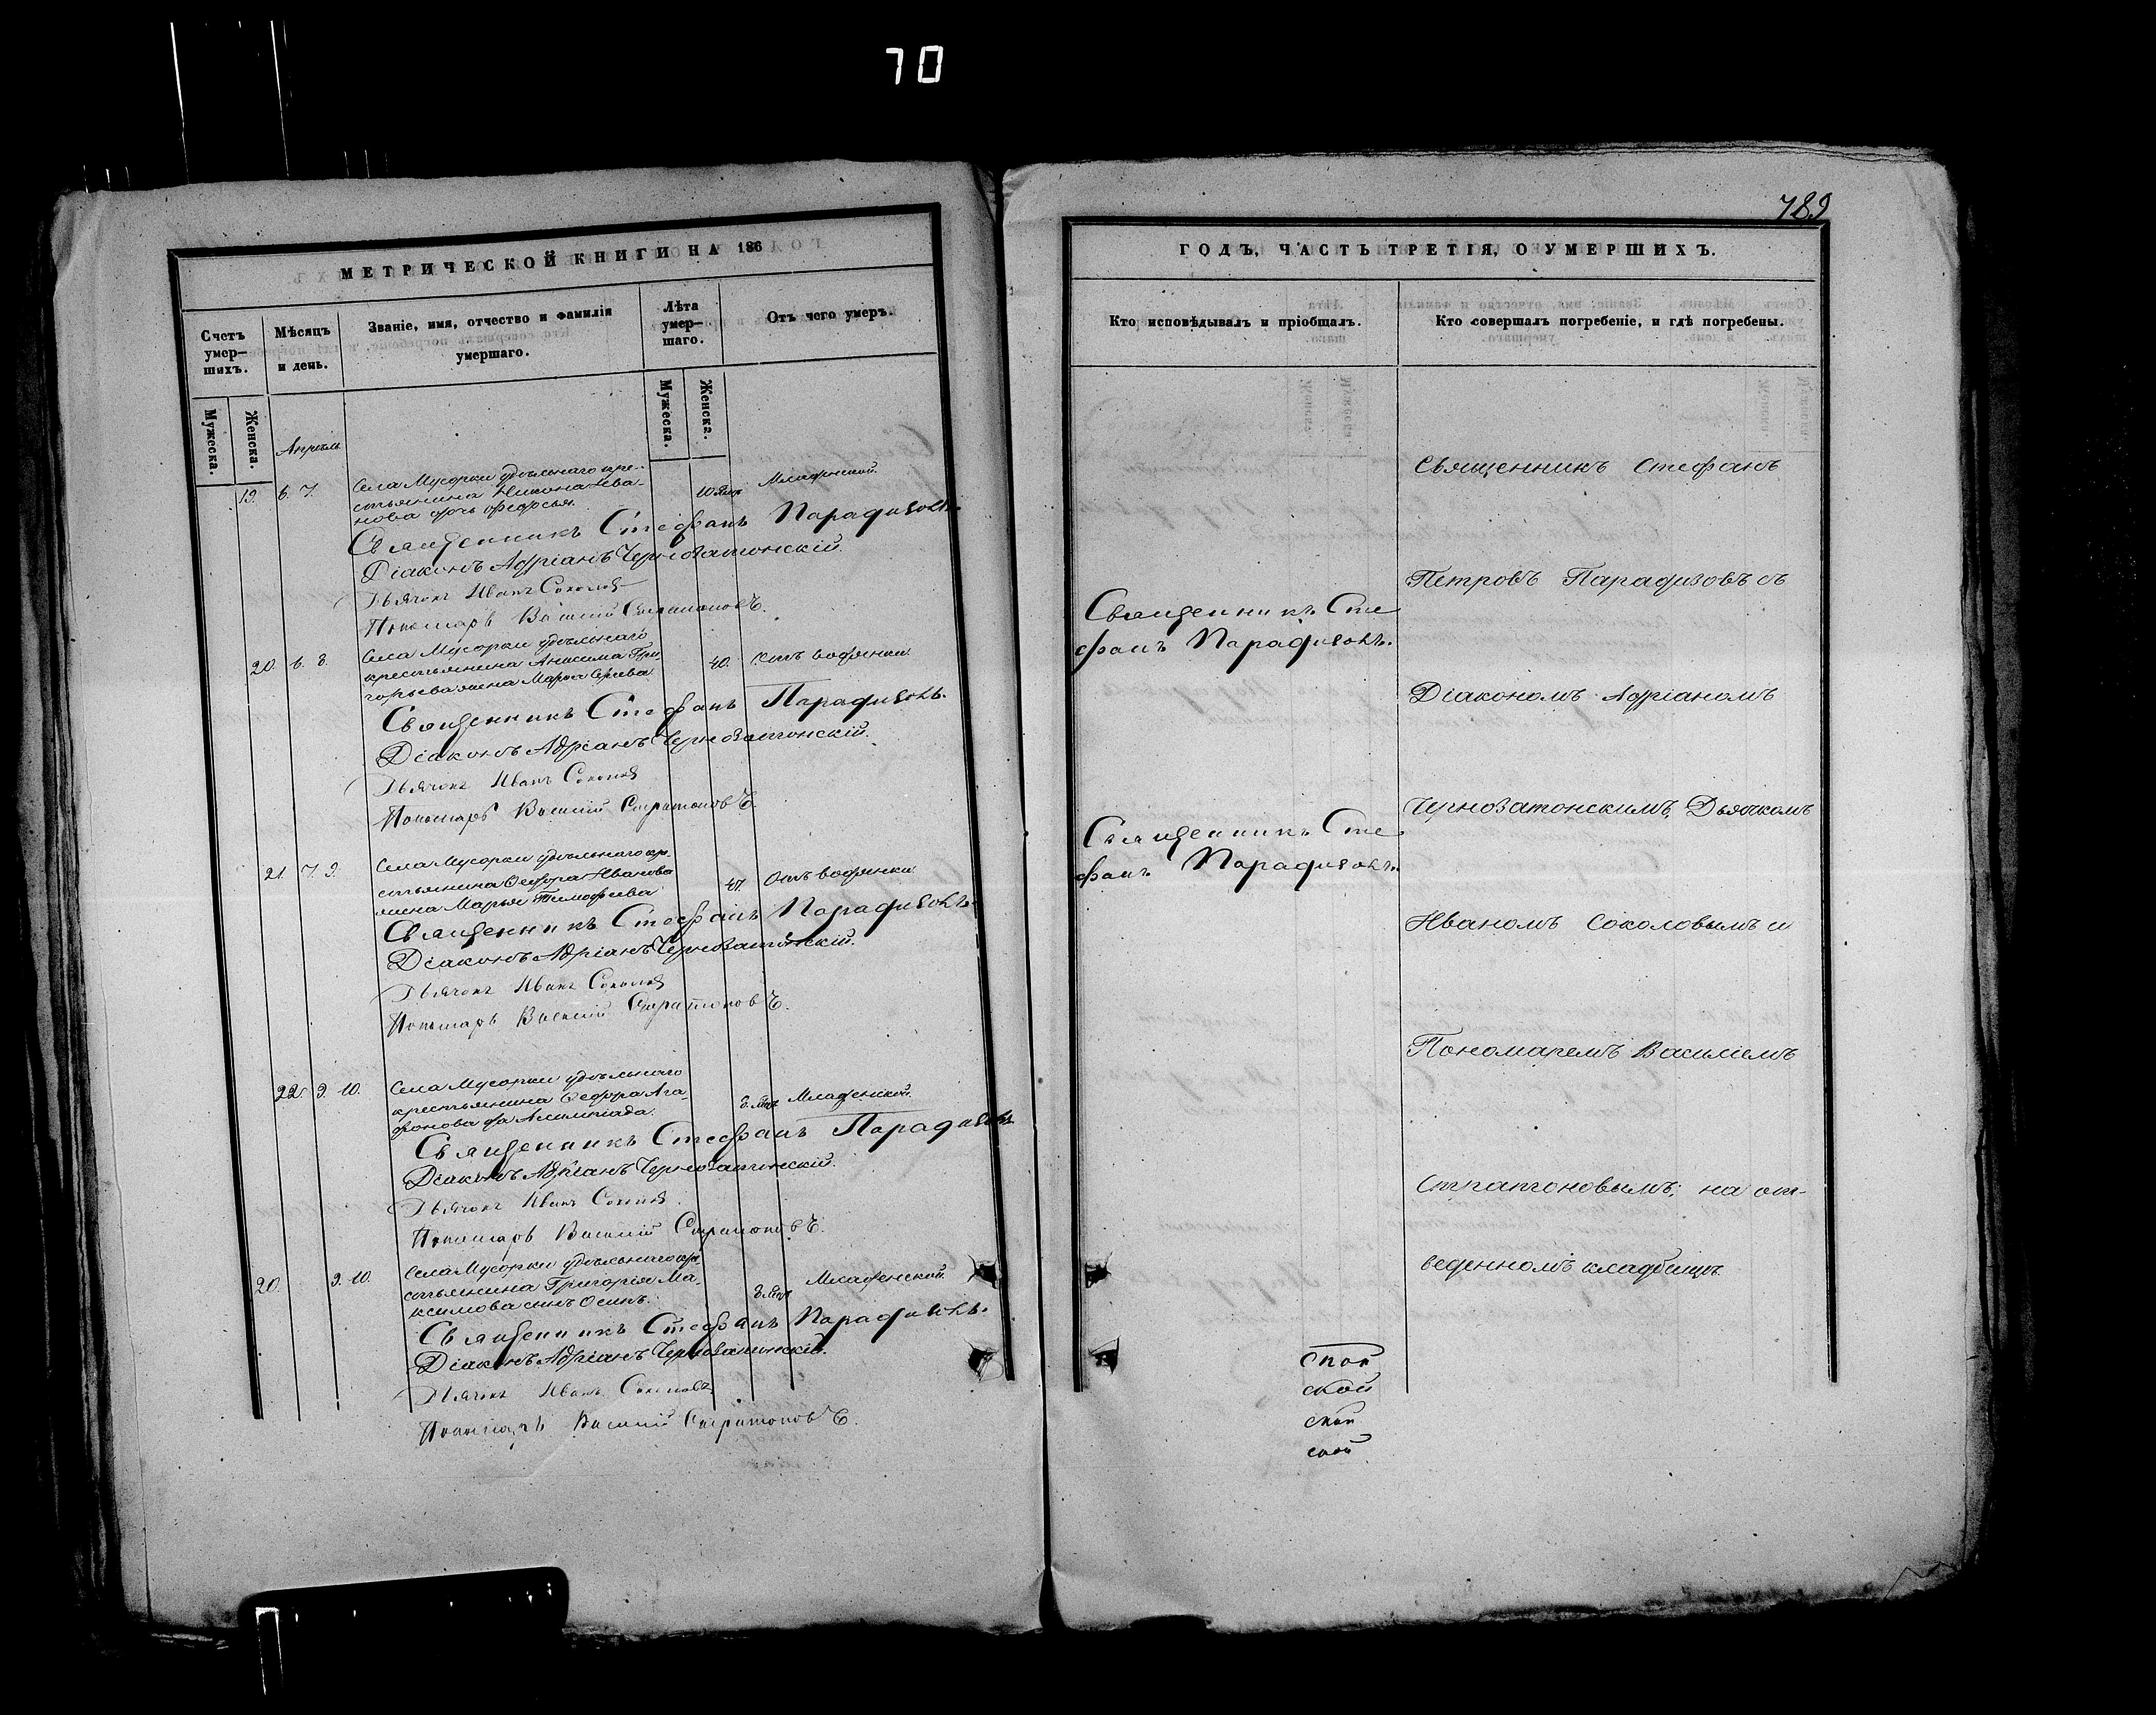 70
789
МЕТРИЧЕСКОЙ КНИГИ НА 186
Счетъ умер-шихъ.
Мѣсяцъ и день.
Званіе, имя, отчество и фамилія умершаго.
Лѣта умер-шаго.
Отъ чего умеръ.
Мужеска.
Женска.
Мужеска.
Женска.
Апрѣль
19. 6. 7. Села Мусорки удѣльнаго кре-
стьянина Никона Ива-
нова дочь Федосья. Младенской.
Священникъ Стефанъ Парадизовъ.
Діаконъ Адріанъ Чернозатонскій.
Дьячекъ Иванъ Соколов
Пономарь Василій Стратоновъ.
20. 6. 8. Села Мусорки удѣльнаго
крестьянина Анисима Гри-
горьева жена Марья 40. отъ водянки
Священникъ Стефанъ Парадизовъ.
Діаконъ Адріанъ Чернозатонскій.
Дьячекъ Иванъ Соколов
Пономарь Василій Стратоновъ.
21. 7. 9. Села Мусорки удѣльнаго кр-
стьянина Ѳеодора Иванова
жена Марья Тимофеева 47. Отъ водянки
Священникъ Стефанъ Парадизовъ.
Діаконъ Адріанъ Чернозатонскій.
Дьячекъ Иванъ Соколов
Пономарь Василій Стратоновъ.
22. 9. 10. Села Мусорки удѣльнаго
крестьянина Ѳеодора Ага-
фонова Младенской.
Священникъ Стефанъ Парадизовъ
Діаконъ Адріанъ Чернозатонскій.
Дьячекъ Иванъ Соколов
Пономарь Василій Стратоновъ.
20. 9. 10. Села Мусорки удѣльнаго кре
стьянина Григорія Ма-
ксимова сынъ Осипъ. Младенской
Священникъ Стефанъ Парадизовъ.
Діаконъ Адріанъ Чернозатонскій.
Дьячекъ Иванъ Соколовъ
Пономарь Василій Стратоновъ.
ГОДЪ, ЧАСТЬ ТРЕТІЯ, О УМЕРШИХЪ.
Кто исповѣдывалъ и пріобщалъ.
Кто совершалъ погребеніе, и гдѣ погребены.
Священникъ Сте
фанъ Парадизовъ.
Священникъ Сте
фанъ Парадизовъ.
Священникъ Стефанъ
Петровъ Парадизовъ съ
Діакономъ Адріаномъ
Чернозатонскимъ, Дьячкомъ
Иваномъ Соколовымъ и
Пономаремъ Василіемъ
Стратоновымъ; на от-
веденномъ кладбищѣ.
ской